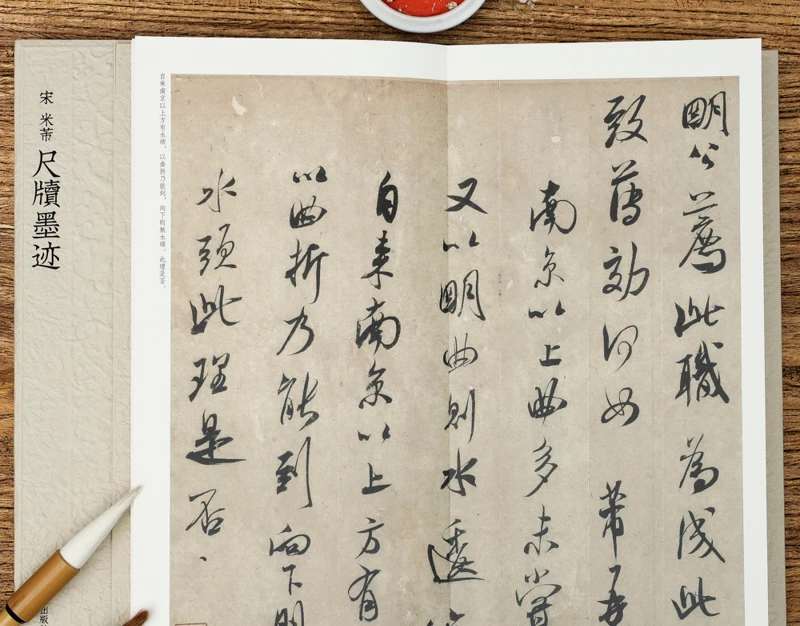 明公以薦此職為成此
致薄効何如 芾再
南京以上曲多未嘗
又以明曲則水逶
自来南京以上方有
以曲折乃能到向下則
水頭此理是否
自来南京以上方有水頭，以曲折乃能到，向下則無水頭，此理是否。
宋 米芾 尺牘墨迹
出版